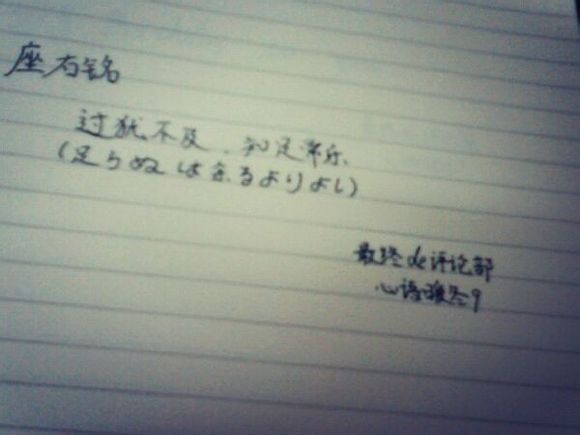 座右铭
过犹不及．知足常乐．
(足らぬは余るよりよし)
最终de评论部
心语暖冬9